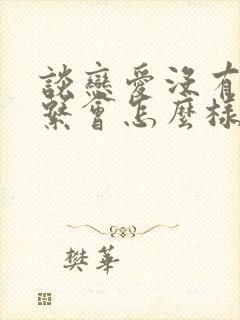 談戀愛沒有
繫會怎麼樣
樊華